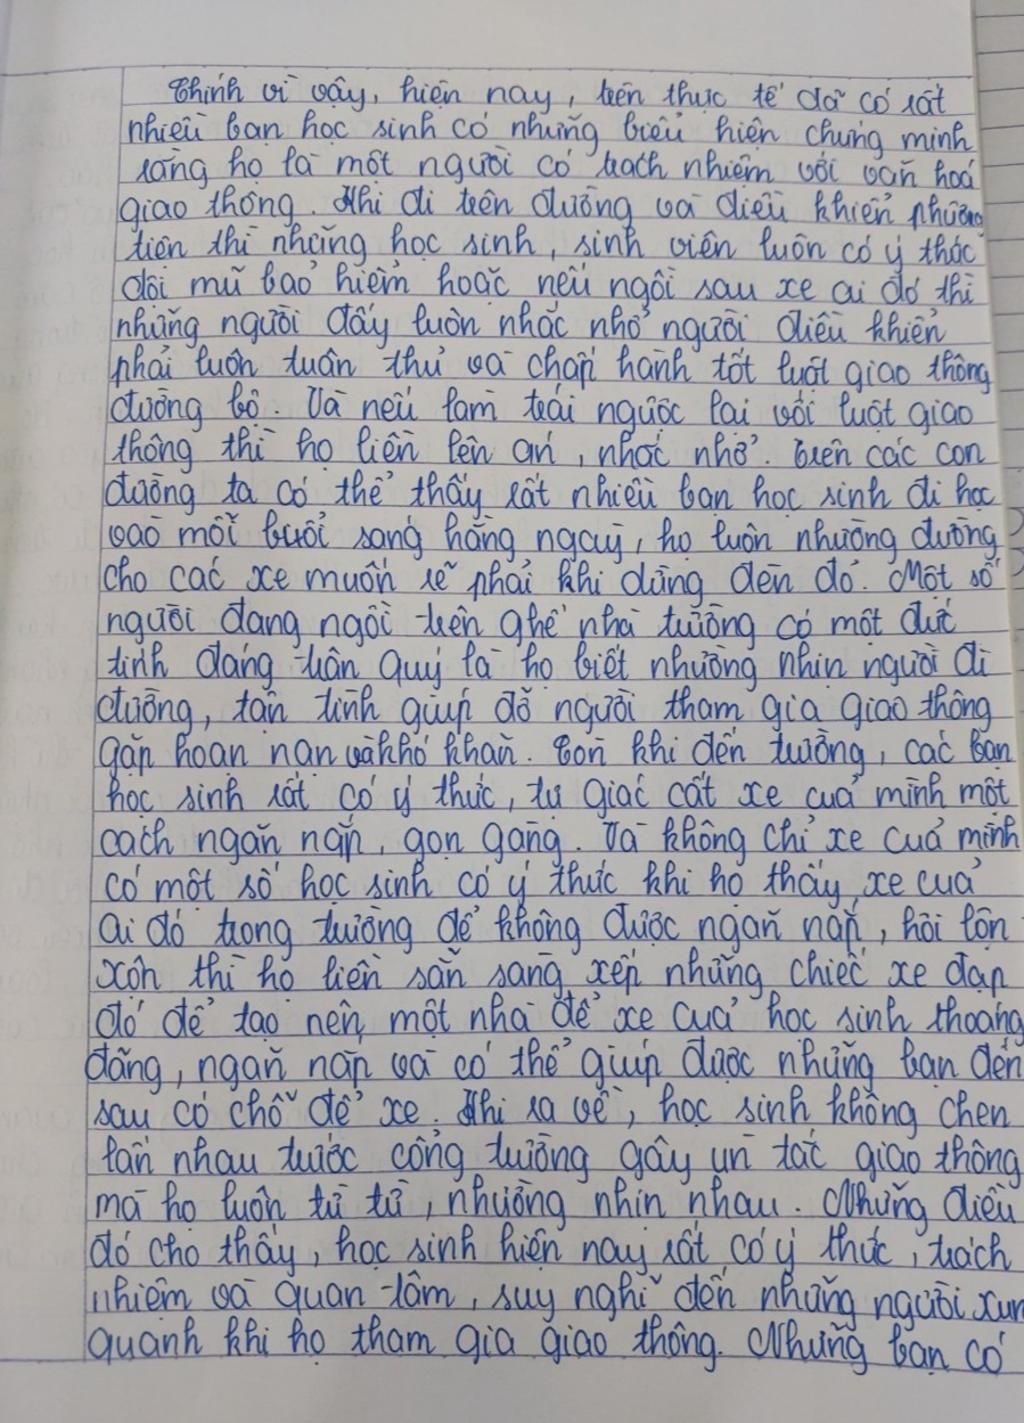 Chính vì vậy, hiện nay, trên thực tế đã có rất
nhiều bạn học sinh có những biểu hiện chứng minh
rằng họ là một người có trách nhiệm với văn hoá
giao thông. Khi đi trên đường và điều khiển phương
tiện thì những học sinh, sinh viên luôn có ý thức
đội mũ bảo hiểm hoặc nếu ngồi sau xe ai đó thì
những người đấy luôn nhắc nhở người điều khiển
phải luôn tuân thủ và chấp hành tốt luật giao thông
đường bộ. Và nếu làm trái ngược lại với luật giao
thông thì họ liền lên án, nhắc nhở. Trên các con
đường ta có thể thấy rất nhiều bạn học sinh đi học
vào mỗi buổi sáng hằng ngày, họ luôn nhường đường
cho các xe muốn rẽ phải khi dừng đèn đỏ. Một số
người đang ngồi trên ghế nhà trường có một đức
tính đáng trân quý là họ biết nhường nhịn người đi
đường, tận tình giúp đỡ người tham gia giao thông
gặp hoạn nạn và khó khăn. Còn khi đến trường, các bạn
học sinh rất có ý thức, tự giác cất xe của mình một
cách ngăn nắp, gọn gàng. Và không chỉ xe của mình
có một số học sinh có ý thức khi họ thấy xe của
ai đó trong trường để không được ngăn nắp, hơi lộn
xộn thì họ liền sẵn sàng xếp những chiếc xe đạp
đó để tạo nên một nhà để xe của học sinh thoáng
đãng, ngăn nắp và có thể giúp được những bạn đến
sau có chỗ để xe. Khi ra về, học sinh không chen
lấn nhau trước cổng trường gây ùn tắc giao thông
mà họ luôn từ từ, nhường nhịn nhau. Những điều
đó cho thấy, học sinh hiện nay rất có ý thức, trách
nhiệm và quan tâm, suy nghĩ đến những người xun
quanh khi họ tham gia giao thông. Những bạn có